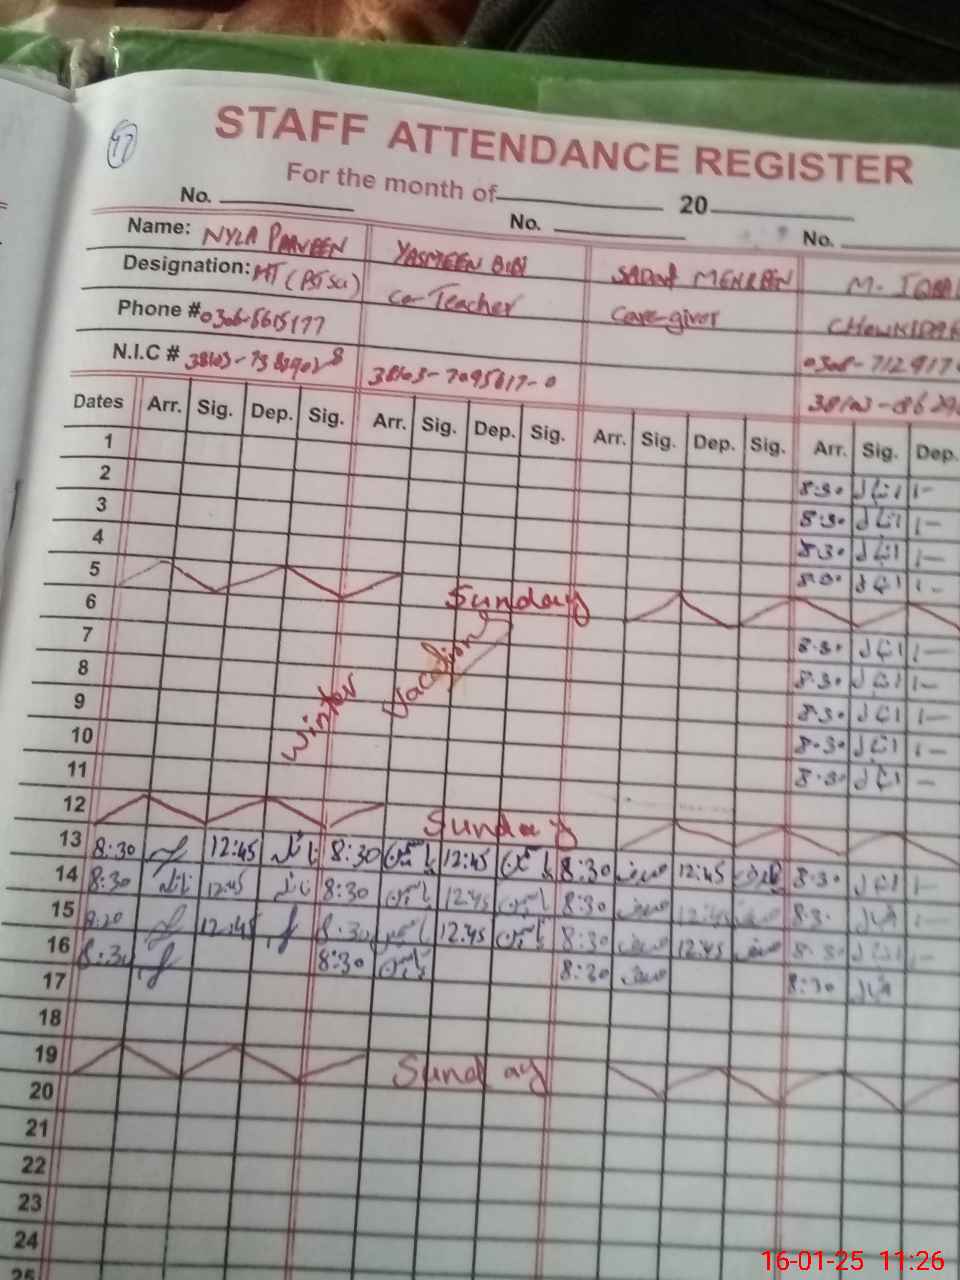 47
STAFF ATTENDANCE REGISTER
For the month of 20
No. No. No.
Name: NYLA PARVEEN YASMEEN BIBI SADAF MEHREEN M. IQBAL
Designation: HT (BSc) Co-Teacher Care-giver CHOWKIDAR
Phone #
N.I.C # 38103-7095617-0
Dates Arr. Sig. Dep. Sig. Arr. Sig. Dep. Sig. Arr. Sig. Dep. Sig. Arr. Sig. Dep.
1
2 8:30 اقبال 1-
3 8:30 اقبال 1-
4 8:30 اقبال 1-
5 8:30 اقبال 1-
6 Sunday
7 8:30 اقبال 1-
8 8:30 اقبال 1-
9 8:30 اقبال 1-
10 8:30 اقبال 1-
11 8:30 اقبال -
Winter Vacation
12 Sunday
13 8:30 12:45 نائلہ 8:30 یاسمین 12:45 یاسمین 8:30 صدف 12:45 صدف 8:30 اقبال 1-
14 8:30 نائلہ 12:45 نائلہ 8:30 یاسمین 12:45 یاسمین 8:30 صدف 12:45 صدف 8:30 اقبال 1-
15 8:30 12:45 8:30 یاسمین 12:45 یاسمین 8:30 صدف 12:45 صدف 8:30 اقبال 1-
16 8:30 8:30 یاسمین 8:30 صدف 8:30 اقبال
17
18
19 Sunday
20
21
22
23
24
25
16-01-25 11:26